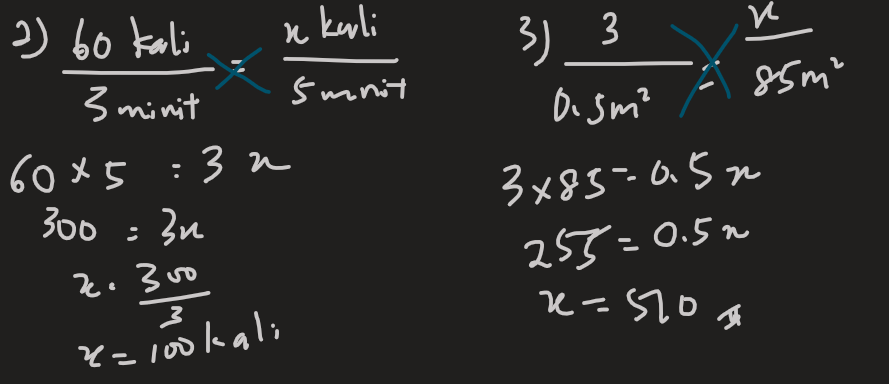 2) 60 kali / 3 minit = x kali / 5 minit
60 x 5 = 3x
300 = 3x
x = 300 / 3
x = 100 kali
3) 3 / 0.5m² = x / 85m²
3 x 85 = 0.5x
255 = 0.5x
x = 510